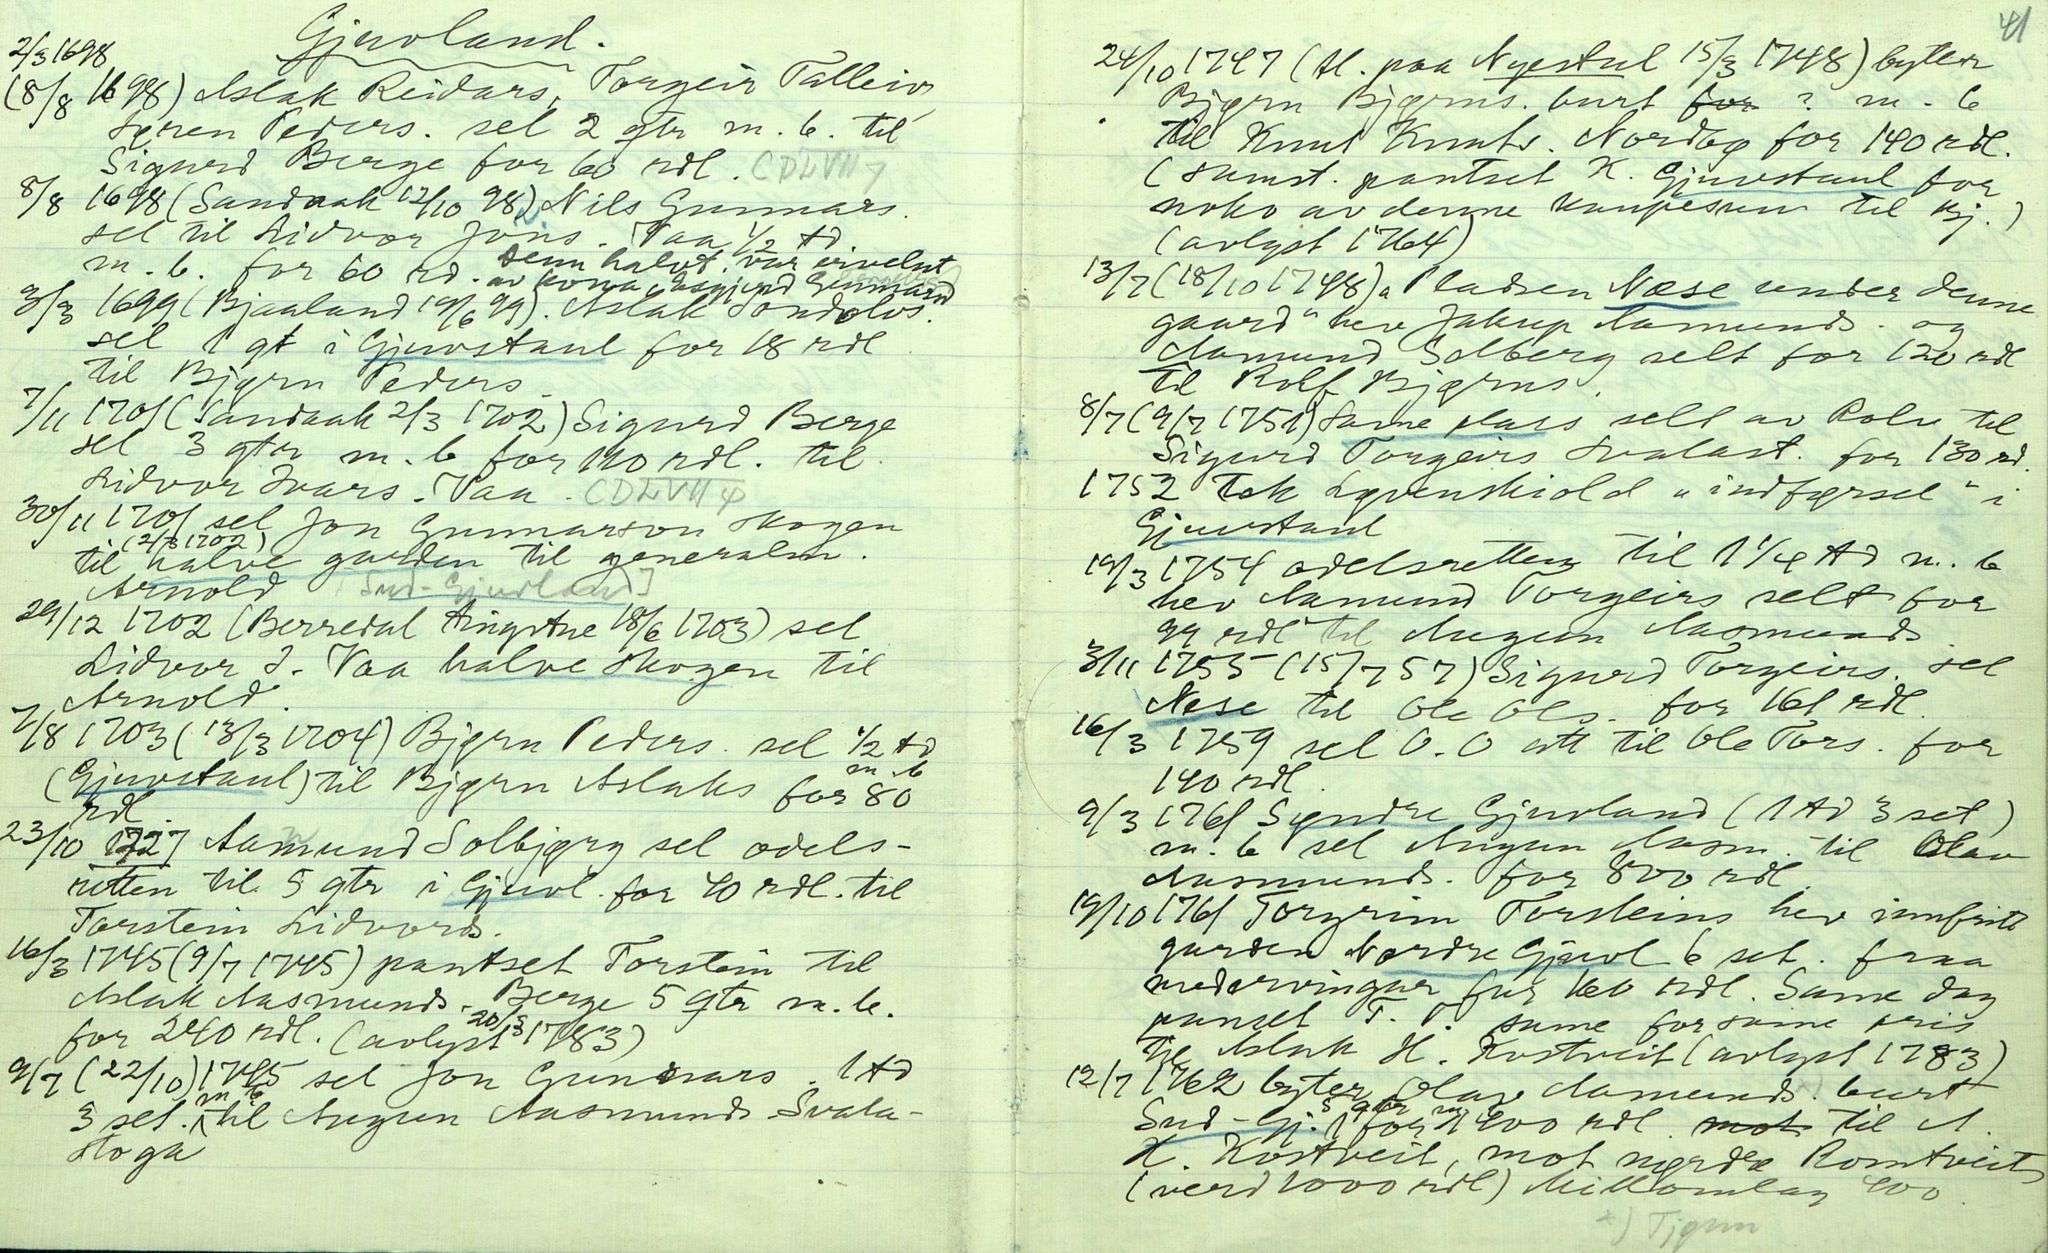 Gjuvland.
2/3 1698
(8/8 1698) Aslak Reidars, Torgeir Talleivs
Søren Peders. sel 2 gtr m.b. til
Sigurd Berge for 60 rdl. CDLVII 7
8/8 1698 (Sandaak 12/10 98) Nils Gunnars.
sel til Lidvor Jons. Vaa 1/2 td
m.b. for 60 rd. Denn halvt. var
av kona Gunnars
3/3 1699 (Bjaaland 19/6 99). Aslak Tondolvs.
sel 1 gt i Gjuvstaul for 18 rdl
til Bjørn Peders
7/11 1701 (Sandaak 2/3 1702) Sigurd Berge
sel 3 gtr m.b for 110 rdl. til
Lidvor Ivars. Vaa. CDLVII φ
30/11 1701 sel Jon Gunnarson Skogen
(2/3 1702)
til halve garden til generalm.
Arnold [Sud-Gjuvland]
29/12 1702 (Berredal tingstue 18/6 1703) sel
Lidvor I. Vaa halve Skogen til
Arnold.
7/8 1703 (13/3 1704) Bjørn Peders. sel 1/2 td
m.b
(Gjuvstaul) til Bjørn Aslaks for 80
rdl.
23/10 1727 Aamund Solbjørg sel odels-
retten til 5 gtr i Gjuvl. for 40 rdl. til
Torstein Lidvords.
16/3 1745 (9/7 1745) pantset Torstein til
Aslak Aasmunds. Berge 5 gtr m.b.
for 240 rdl. (avlyst 20/3 1783)
9/7 (22/10) 1745 sel Jon Gunnars. 1 td
m b
3 set. til Augun Aasmunds Svala-
stoga
41
24/10 1747 (tl. paa Nyestul 15/3 1748) byter
Bjørn Bjørns. burt for ? m.b
til Knut Knuts. Nordbø for 140 rdl.
(samst. pantset K. Gjuvstaul for
noko av denne kaupesum til Bj.)
(avlyst 1764)
13/7 (18/10 1748) "Pladsen Næse under denne
gaard" hev Jakup Aamunds. og
Aamund Solberg selt for 120 rdl
til Rolf Bjørns.
8/7 (9/7 1751) Same plass selt av Rolv til
Sigurd Torgeirs Svalast. for 130 rd.
1752 tok Løvenskiold "indførsel" i
Gjuvstaul
19/3 1754 odelsretten til 1 1/4 td m.b
hev Aamund Torgeirs selt for
99 rdl til Augun Aasmunds
3/11 1755 (15/7 57) Sigurd Torgeirs. sel
Nese til Ole Ols. for 161 rdl.
16/3 1759 sel O.O att til Ole Tors. for
140 rdl.
9/3 1761 Syndre Gjuvland (1 td 3 set)
m.b sel Augun Aasm. til Olav
Aasmunds. for 800 rdl.
19/10 1761 Torgrim Torsteins hev innfrita
garden Nørdre Gjuvl 6 set. fraa
medarvingar fur 160 rdl. Same dag
panset T.T. same for same pris
til Aslak H. Kostveit (avlyst 1783)
12/7 1762 byter Olav Aamunds. burt
5 gtr m b
Sud-Gj. for 1400 rdl. mot til A.
H. Kostveit, mot nørdre Romtveit
(verd 1000 rdl) Millomlag 400
*) Tjønn